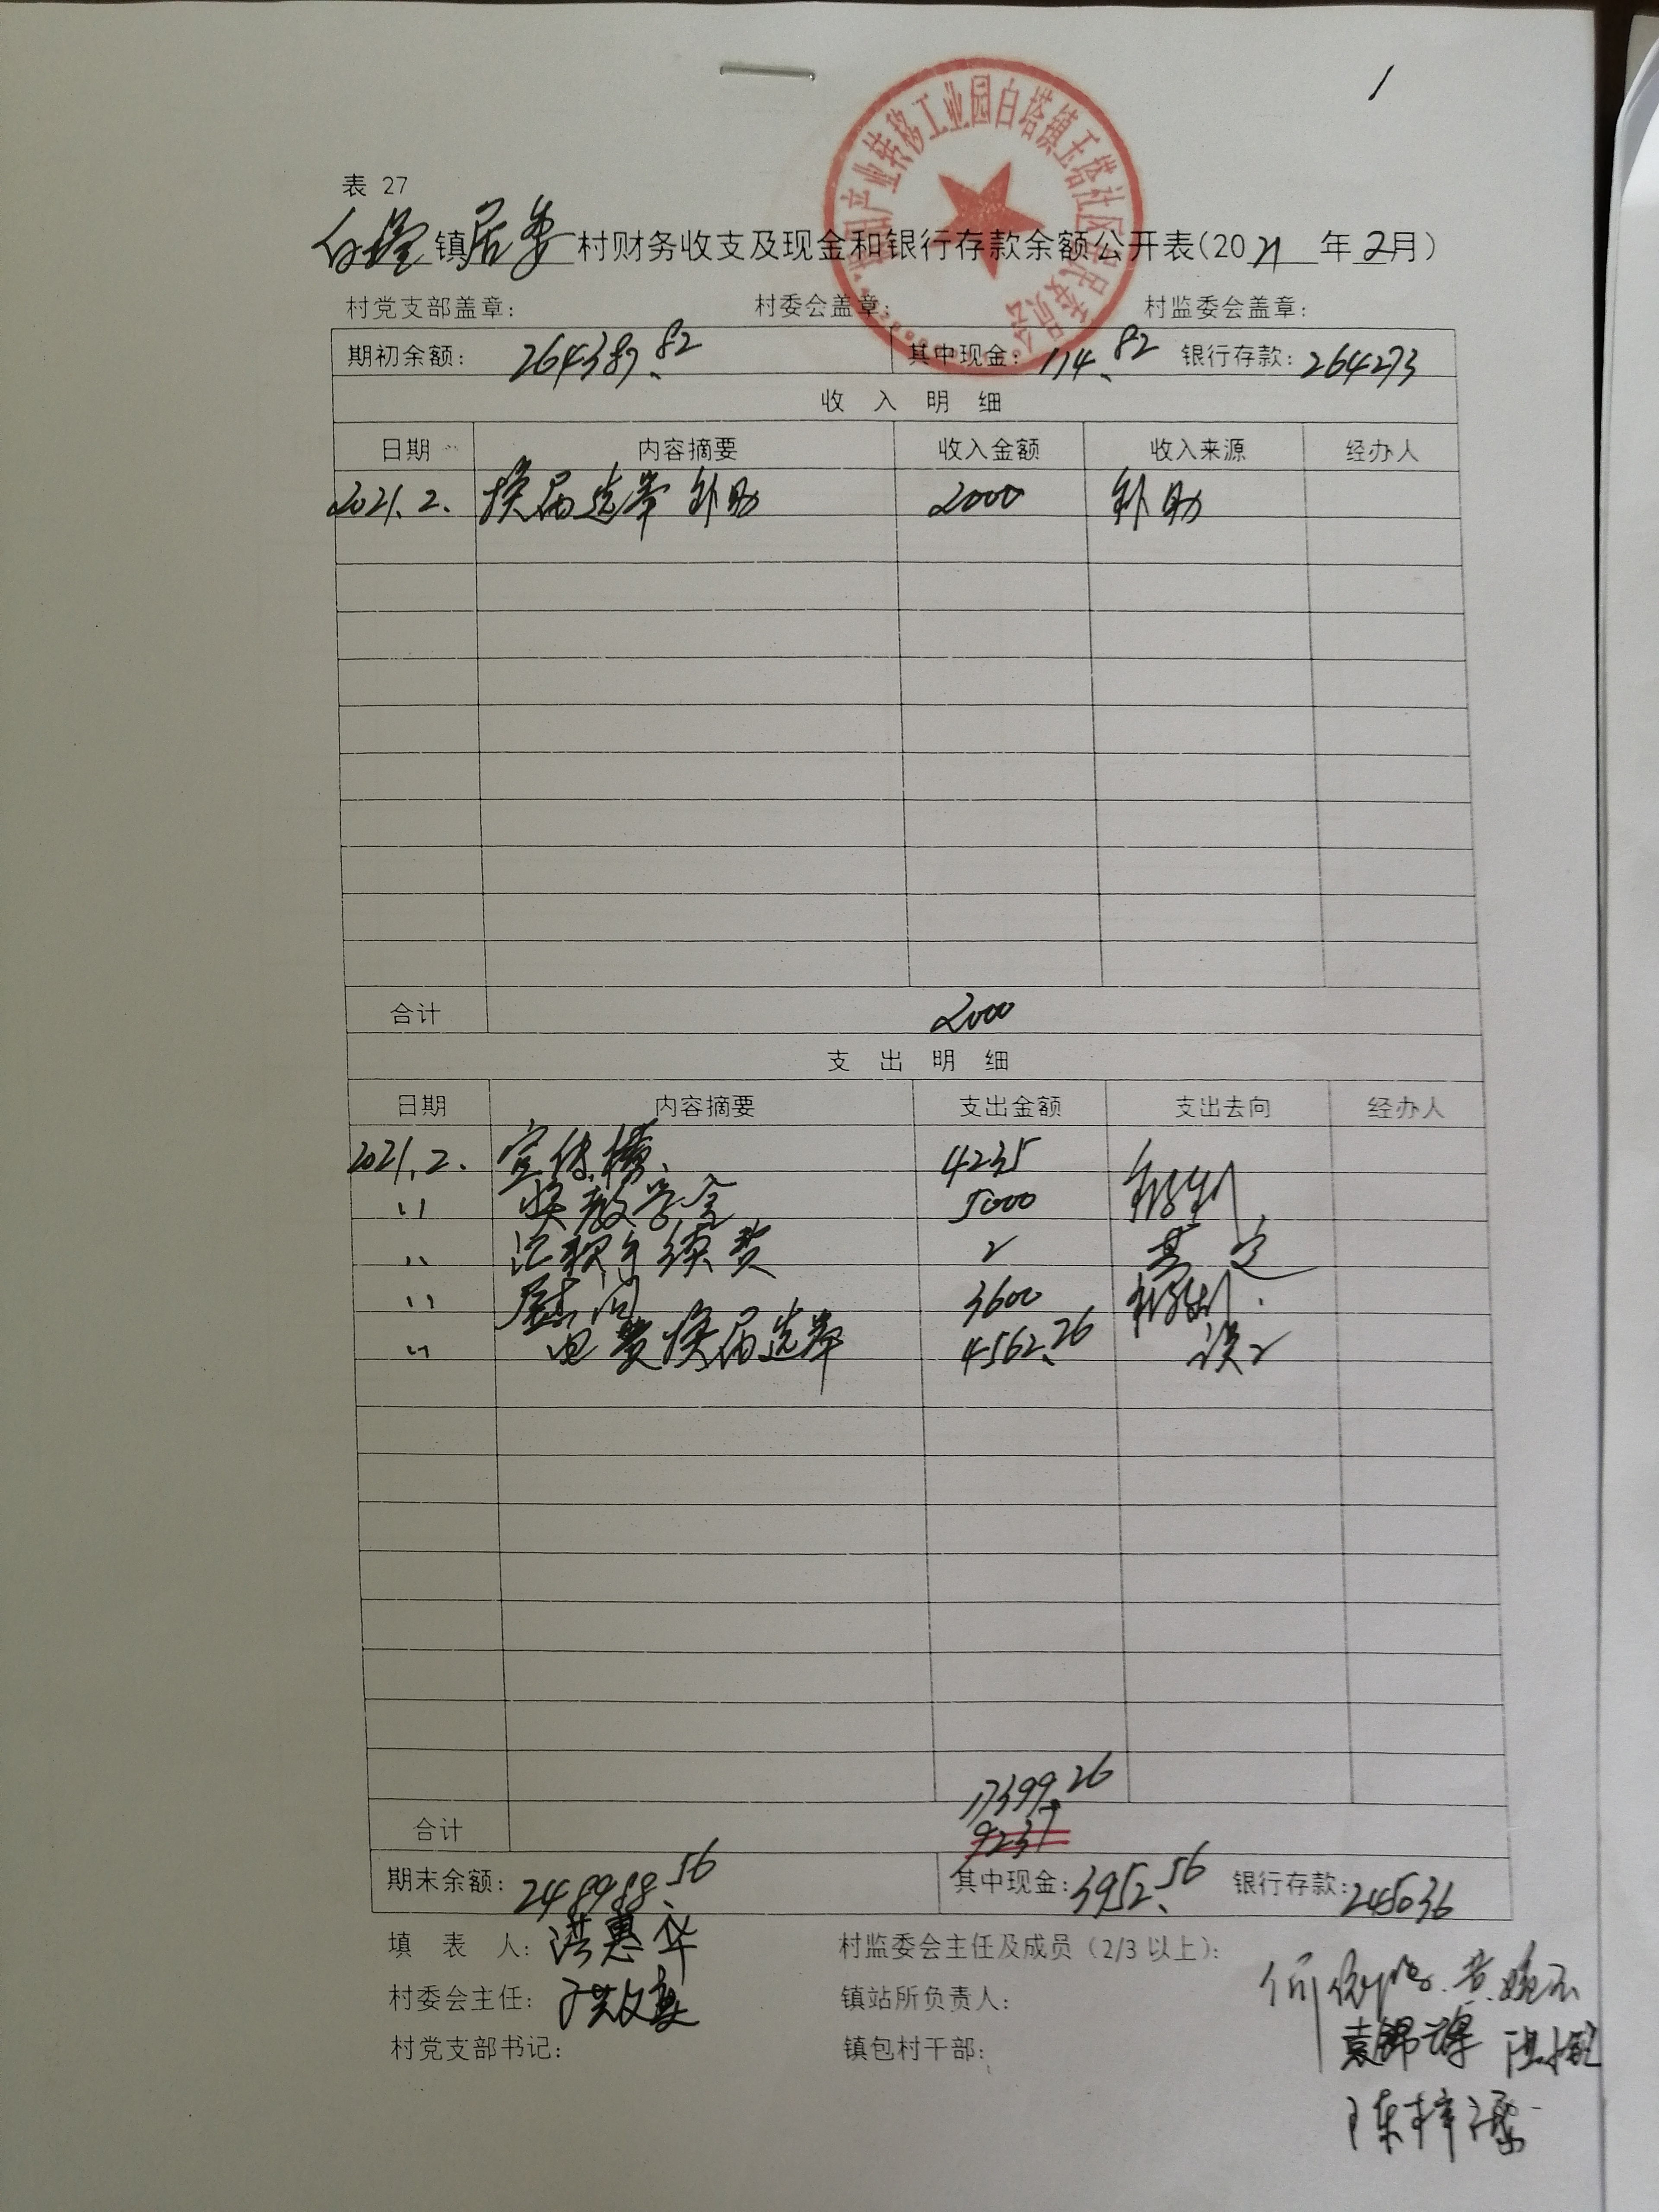 1
产业转移工业园白塔镇玉塔社区居民委员会
表 27
白塔镇居委村财务收支及现金和银行存款余额公开表(2021年2月)
村党支部盖章: 村委会盖章: 村监委会盖章:
期初余额: 264387.82 其中现金: 114.82 银行存款: 264273
收 入 明 细
日期 内容摘要 收入金额 收入来源 经办人
2021.2. 换届选举补助 2000 补助
合计 2000
支 出 明 细
日期 内容摘要 支出金额 支出去向 经办人
2021.2. 宣传横 4235
〃 奖教学金 5000 福利
〃 汇款手续费 2 其它
〃 慰问 3600 福利
〃 电费换届选举 4562.26
17399.26
合计 9237
期末余额: 248988.56 其中现金: 3952.56 银行存款: 245036
填 表 人: 洪惠华 村监委会主任及成员(2/3 以上):
村委会主任: 镇站所负责人:
村党支部书记: 镇包村干部: